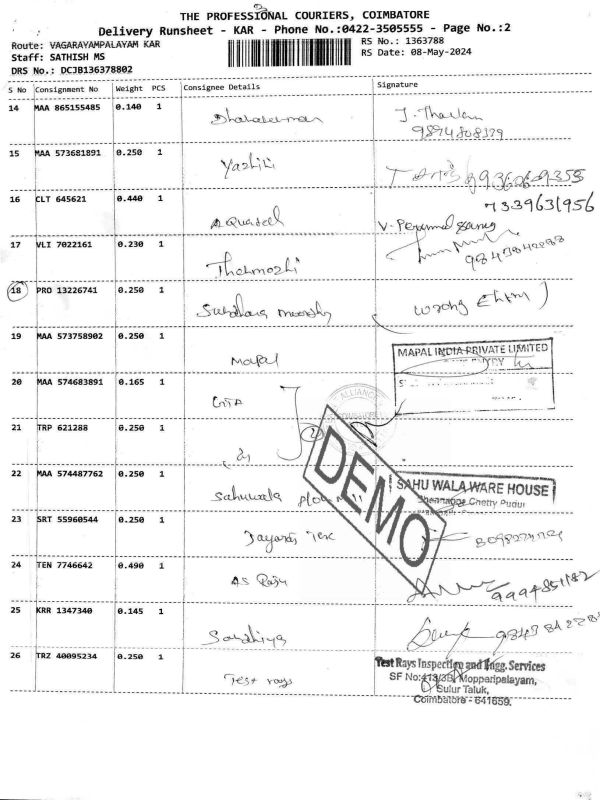 THE PROFESSIONAL COURIERS, COIMBATORE
Delivery Runsheet - KAR - Phone No.:0422-3505555 - Page No.:2
Route: VAGARAYAMPALAYAM KAR
RS No.: 1363788
Staff: SATHISH MS
RS Date: 08-May-2024
DRS No.: DCJB136378802
S No Consignment No Weight PCS Consignee Details Signature
14 MAA 865155485 0.140 1
9894808379
15 MAA 573681891 0.250 1 Yazhini
9362649355
16 CLT 645621 0.440 1 Aquatech
7339631956
V. Perumal
17 VLI 7022161 0.230 1 Thenmozhi
9843842288
18 PRO 13226741 0.250 1 moorthy wrong
19 MAA 573758902 0.250 1 Mapal
MAPAL INDIA PRIVATE LIMITED
20 MAA 574683891 0.165 1
ALLIANCE
21 TRP 621288 0.250 1
2
DEMO
22 MAA 574487762 0.250 1 Sahuwala
SAHU WALA WARE HOUSE
Chetty Pudur
23 SRT 55960544 0.250 1 Tex
24 TEN 7746642 0.490 1 AS Raju
9994851182
25 KRR 1347340 0.145 1
26 TRZ 40095234 0.250 1 Test rays
Test Rays Inspection and Engg. Services
SF No:413/3B, Mopperipalayam,
Sulur Taluk,
Coimbatore - 641659.